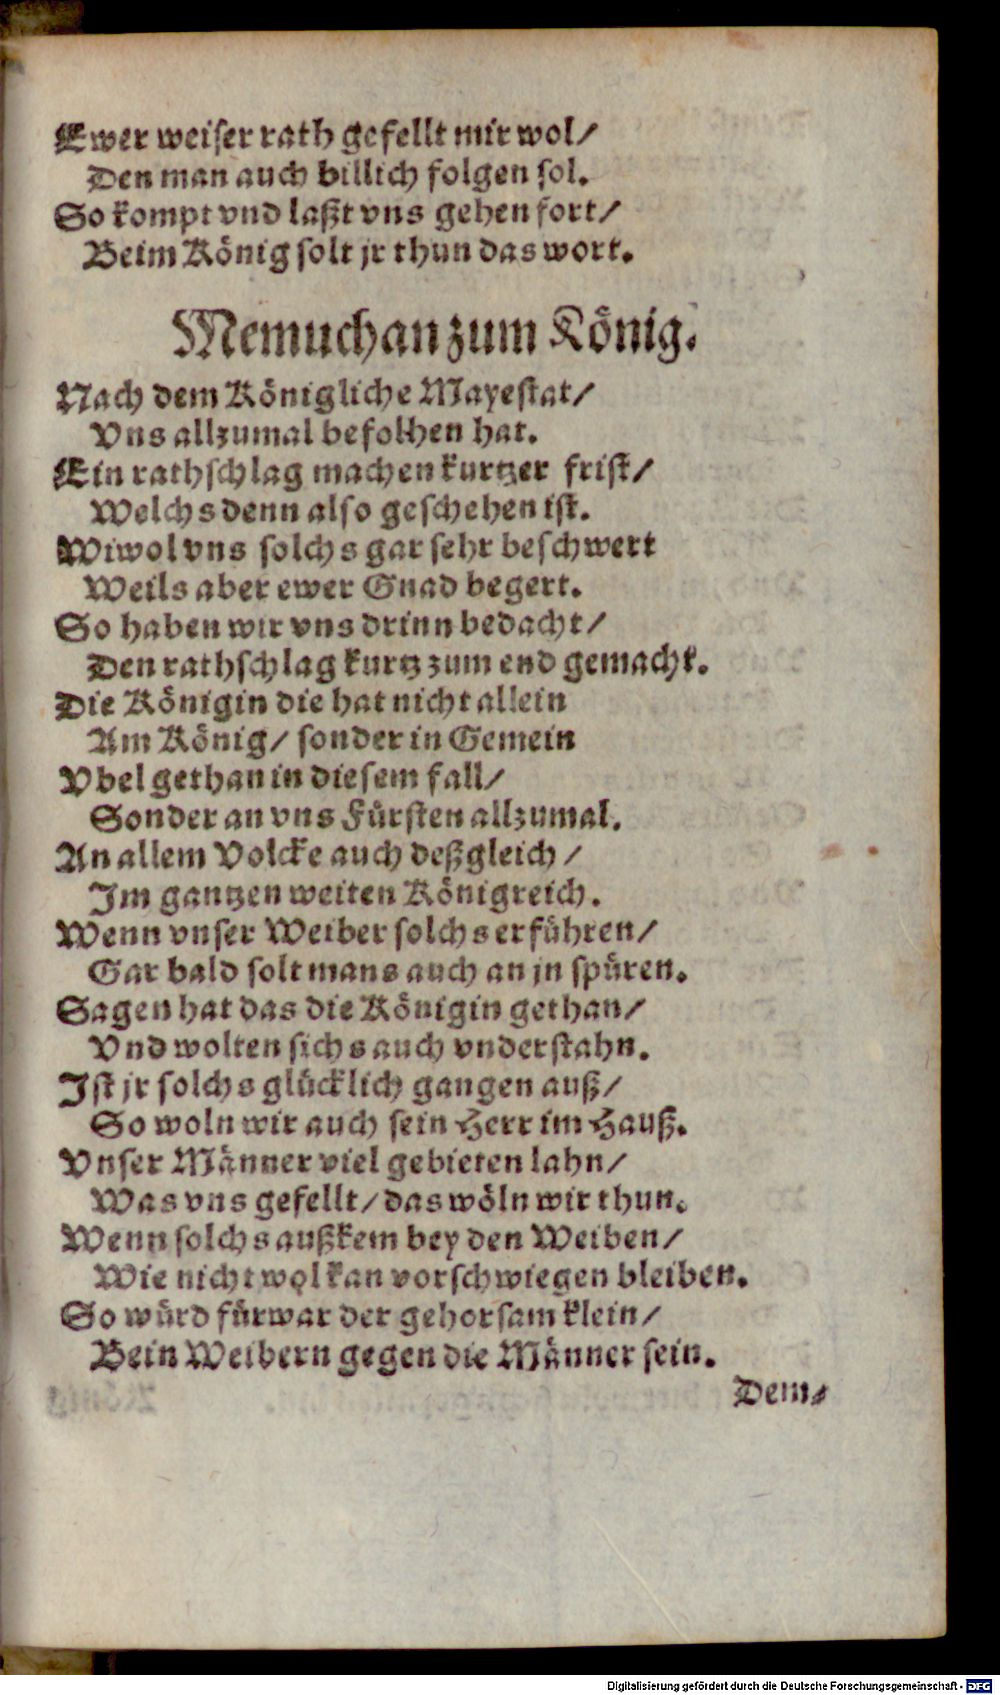 Ewer weiser rath gefellt mir wol/
Den man auch billich folgen sol.
So kompt vnd laßt vns gehen fort/
Beim König solt jr thun das wort.
Memuchan zum König.
Nach dem Königliche Mayestat/
Vns allzumal befolhen hat.
Ein rathschlag machen kurtzer frist/
Welchs denn also geschehen ist.
Wiwol vns solchs gar sehr beschwert
Weils aber ewer Gnad begert.
So haben wir vns drinn bedacht/
Den rathschlag kurtz zum end gemacht.
Die Königin die hat nicht allein
Am König/ sonder in Gemein
Vbel gethan in diesem fall/
Sonder an vns Fürsten allzumal.
An allem Volcke auch deßgleich/
Im gantzen weiten Königreich.
Wenn vnser Weiber solchs erführen/
Gar bald solt mans auch an jn spüren.
Sagen hat das die Königin gethan/
Vnd wolten sichs auch vnderstahn.
Ist jr solchs glücklich gangen auß/
So woln wir auch sein Herr im Hauß.
Vnser Männer viel gebieten lahn/
Was vns gefellt/ das wöln wir thun.
Wenn solchs außkem bey den Weiben/
Wie nicht wol kan vorschwiegen bleiben.
So würd fürwar der gehorsam klein/
Bein Weibern gegen die Männer sein.
Dem/
Digitalisierung gefördert durch die Deutsche Forschungsgemeinschaft - DFG